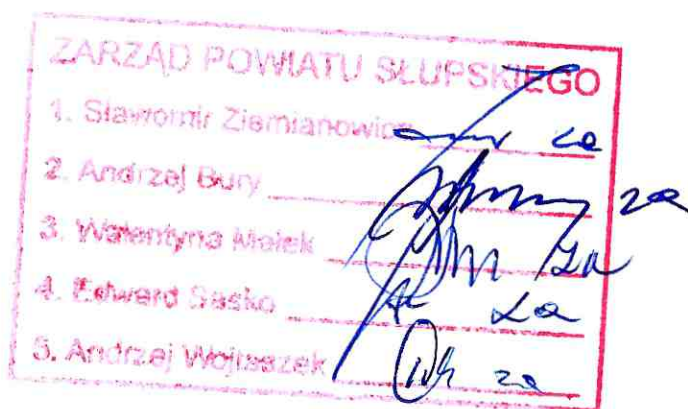 ZARZĄD POWIATU SŁUPSKIEGO
1. Sławomir Ziemianowicz za
2. Andrzej Bury za
3. Walentyna Małek za
4. Edward Sasko za
5. Andrzej Wojtaszek za